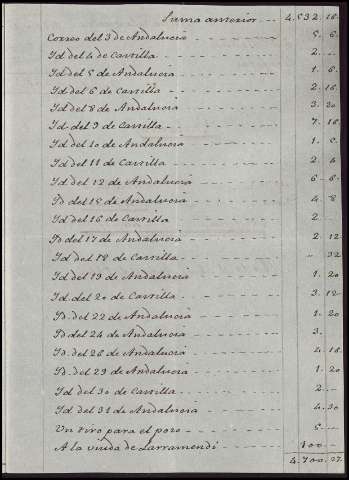 Suma anterior - - 4.532. 16.
Correo del 3 de Andalucia - - - - 5. 6.
Id del 4 de Castilla - - - - - 2. --
Id del 5 de Andalucia - - - - - 1. 6.
Id del 6 de Castilla - - - - - 2. 16.
Id del 8 de Andalucia - - - - - 3. 20
Id del 9 de Castilla - - - - - 7. 16.
Id del 10 de Andalucia - - - - - 1. 8.
Id del 11 de Castilla - - - - - 2. 4
Id del 12 de Andalucia - - - - - 6. 6.
Id del 15 de Andalucia - - - - - 4. 8
Id del 16 de Castilla - - - - - 2. --
Id del 17 de Andalucia - - - - - 2. 12
Id del 18 de Castilla - - - - - " 32
Id del 19 de Andalucia - - - - - 1. 20
Id del 20 de Castilla - - - - - 3. 12
Id del 22 de Andalucia - - - - - 1. 20
Id del 24 de Andalucia - - - - - 3. --
Id del 26 de Andalucia - - - - - 4. 16.
Id del 29 de Andalucia - - - - - 1. 20
Id del 30 de Castilla - - - - - 2. --
Id del 31 de Andalucia - - - - - 4. 30
Un tiro para el pozo - - - - - 5. --
A la viuda de Larramendi - - - - 100. --
4.700. 27.